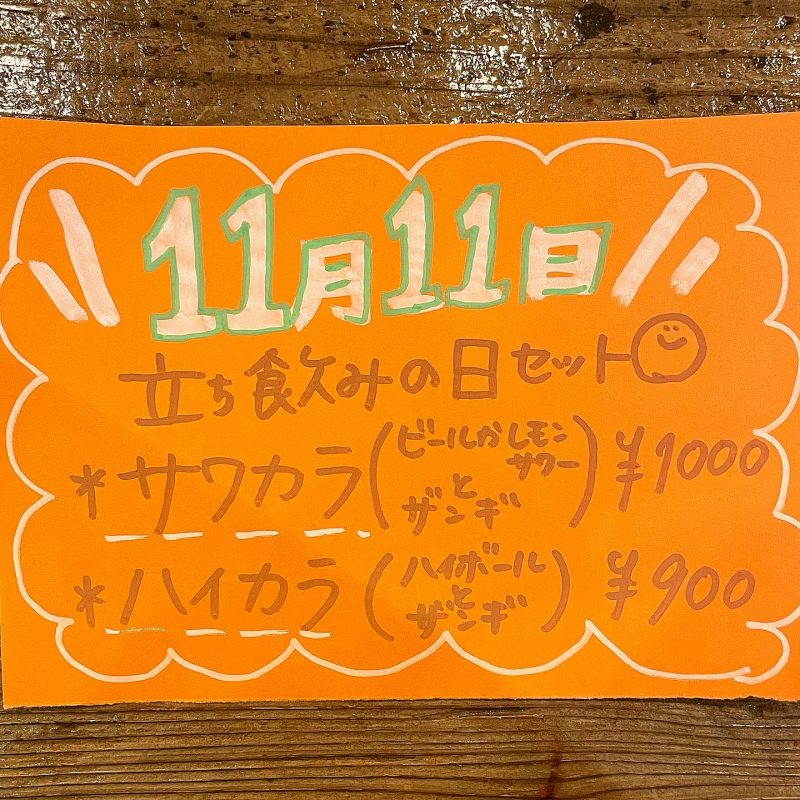 11月11日
立ち飲みの日セット
*サワカラ(ビールかレモンサワーとザンギ)¥1000
*ハイカラ(ハイボールとザンギ)¥900